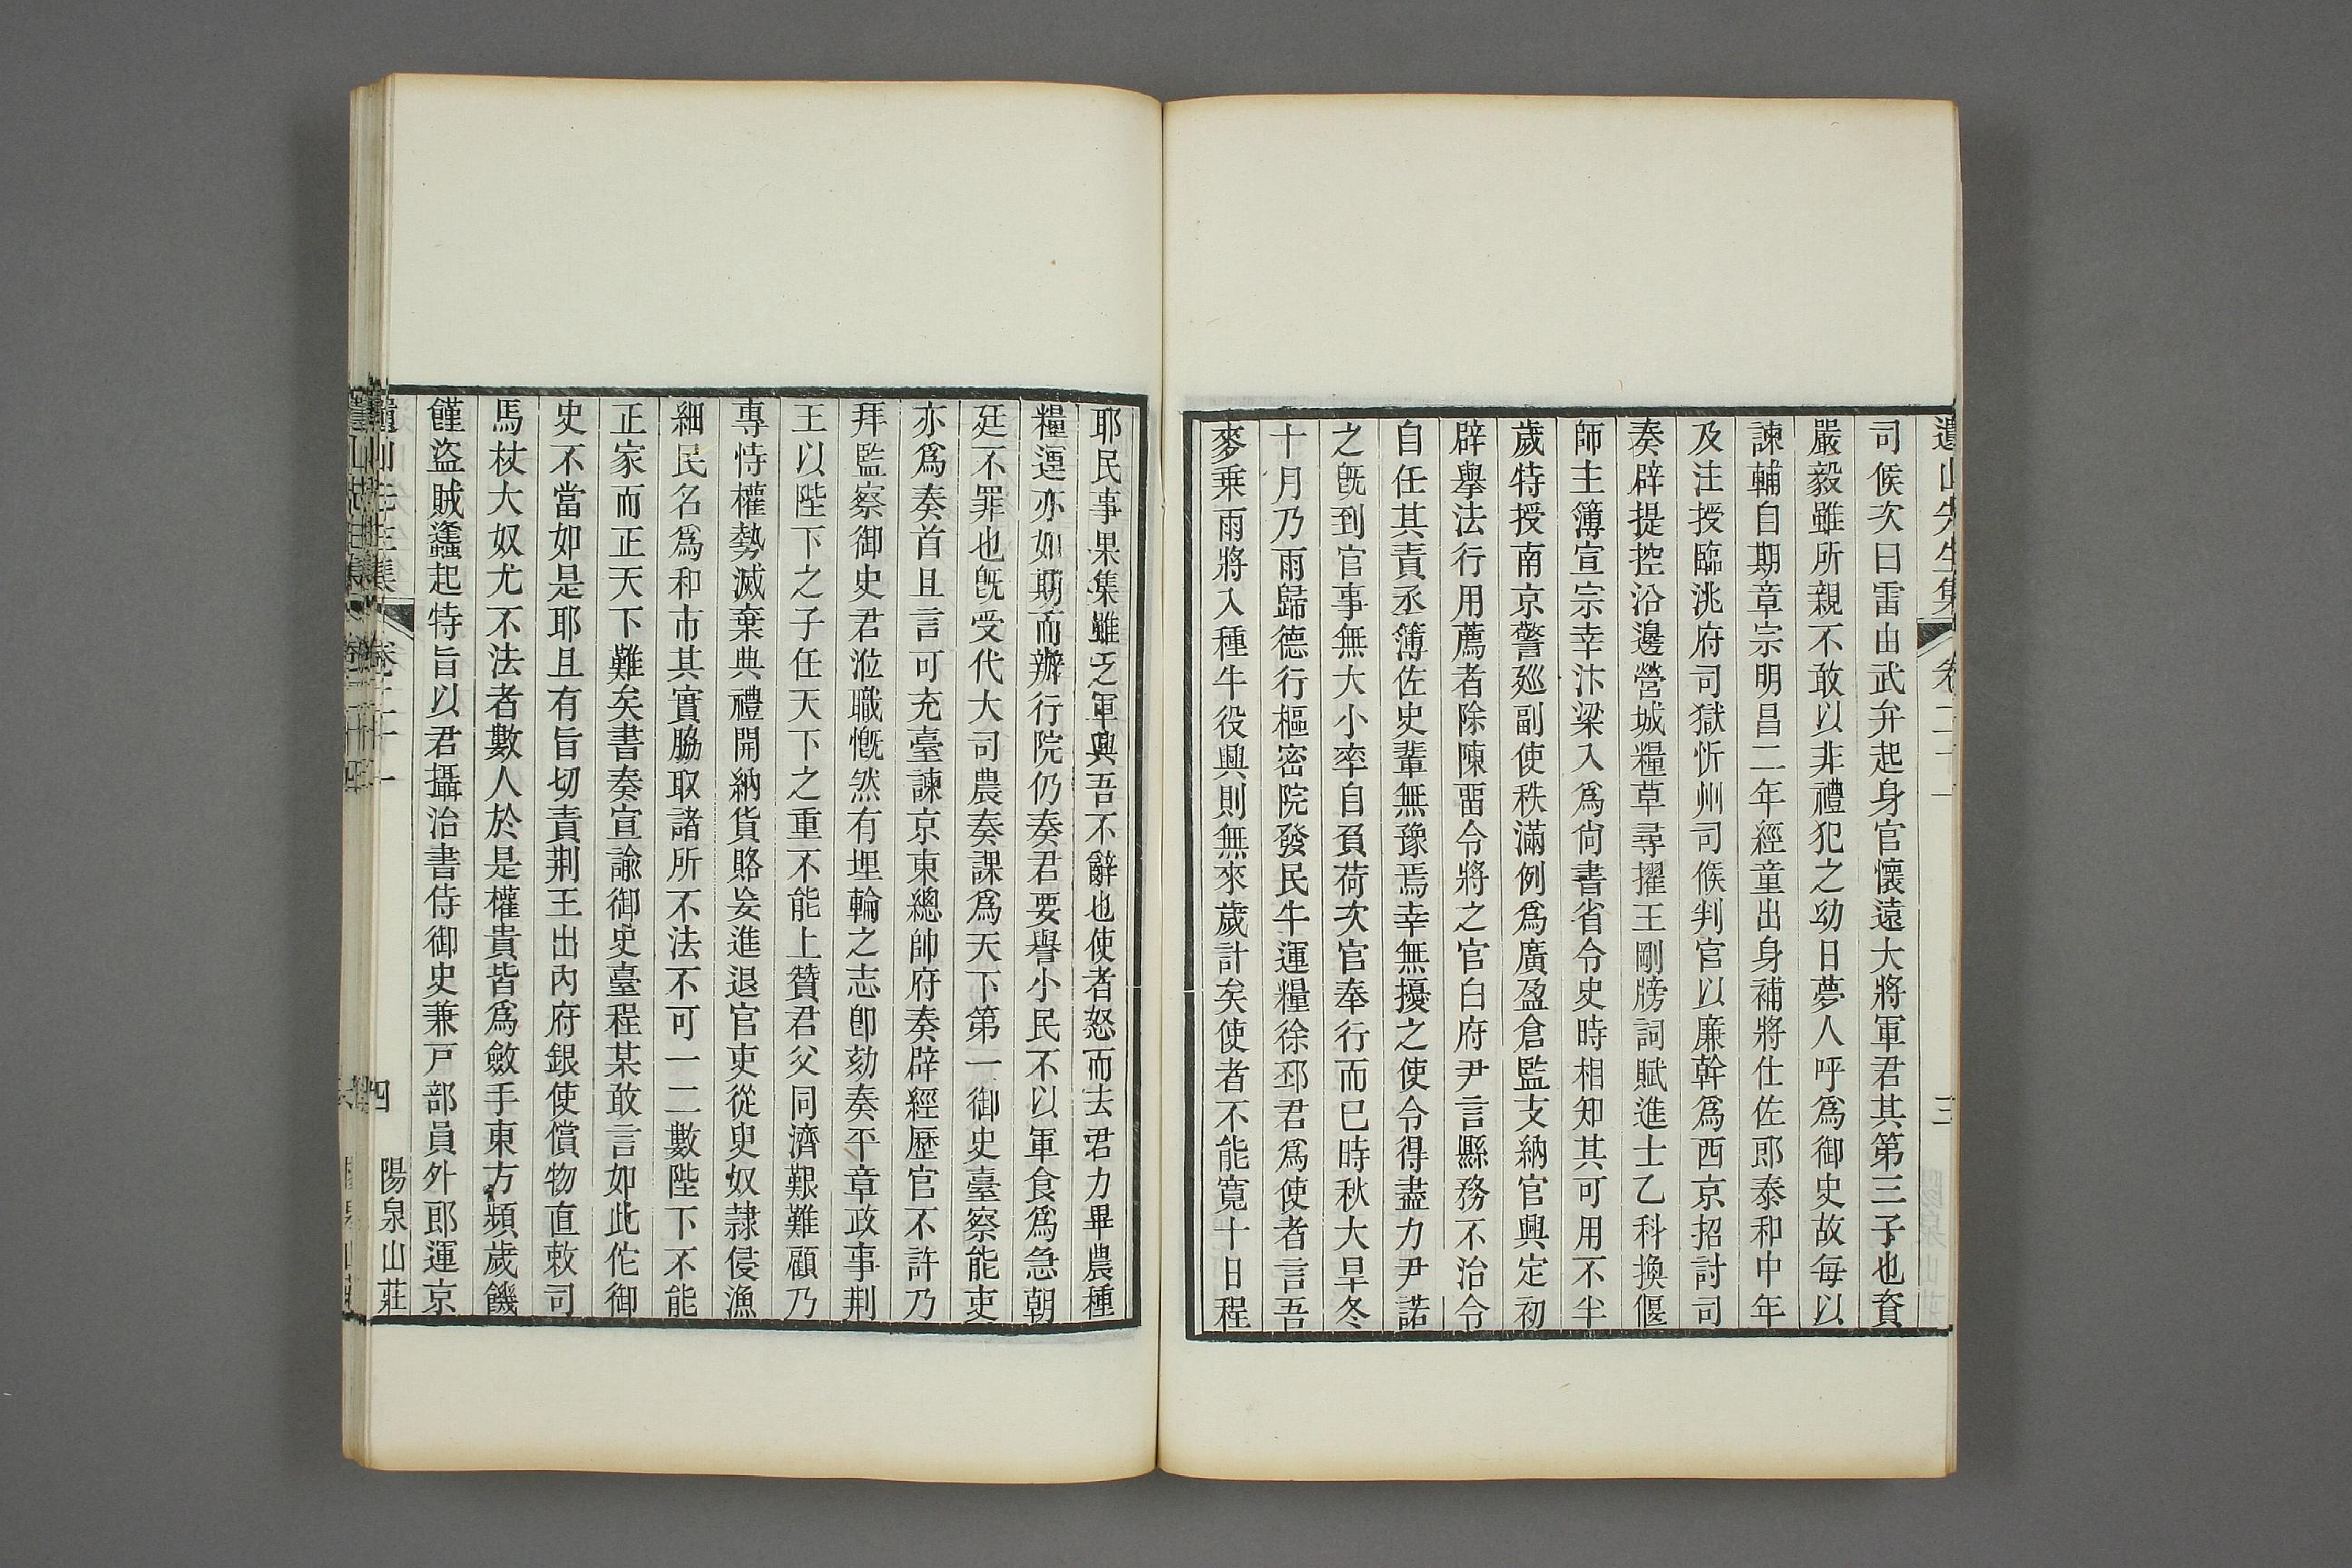 遺山先生集 卷二十一 三
司候次曰雷由武弁起身官懷遠大將軍君其第三子也資
嚴毅雖所親不敢以非禮犯之幼日夢人呼爲御史故每以
諫輔自期章宗明昌二年經童出身補將仕佐郎泰和中年
及注授臨洮府司獄忻州司候判官以廉幹爲西京招討司
奏辟提控沿邊營城糧草尋擢王剛牓詞賦進士乙科換偃
師主簿宣宗幸汴梁入爲尙書省令史時相知其可用不半
歲特授南京警廵副使秩滿例爲廣盈倉監支納官興定初
辟舉法行用薦者除陳畱令將之官白府尹言縣務不治令
自任其責丞簿佐史輩無豫焉幸無擾之使令得盡力尹諾
之旣到官事無大小率自負荷次官奉行而已時秋大旱冬
十月乃雨歸德行樞密院發民牛運糧徐邳君爲使者言吾
麥乗雨將入種牛役興則無來歲計矣使者不能寬十日程
耶民事果集雖乏軍興吾不辭也使者怒而去君力畢農種
糧運亦如期而辦行院仍奏君要譽小民不以軍食爲急朝
廷不罪也旣受代大司農奏課爲天下第一御史臺察能吏
亦爲奏首且言可充臺諫京東總帥府奏辟經歷官不許乃
拜監察御史君涖職慨然有埋輪之志卽劾奏平章政事荆
王以陛下之子任天下之重不能上贊君父同濟艱難顧乃
專恃權勢滅棄典禮開納貨賂妄進退官吏從臾奴隷侵漁
細民名爲和市其實脇取諸所不法不可一二數陛下不能
正家而正天下難矣書奏宣諭御史臺程某敢言如此佗御
史不當如是耶且有旨切責荆王出內府銀使償物直敕司
馬杖大奴尤不法者數人於是權貴皆爲斂手東方頻歲饑
饉盜賊蠭起特旨以君攝治書侍御史兼戸部員外郎運京
遺山先生集 卷二十一 四 陽泉山莊